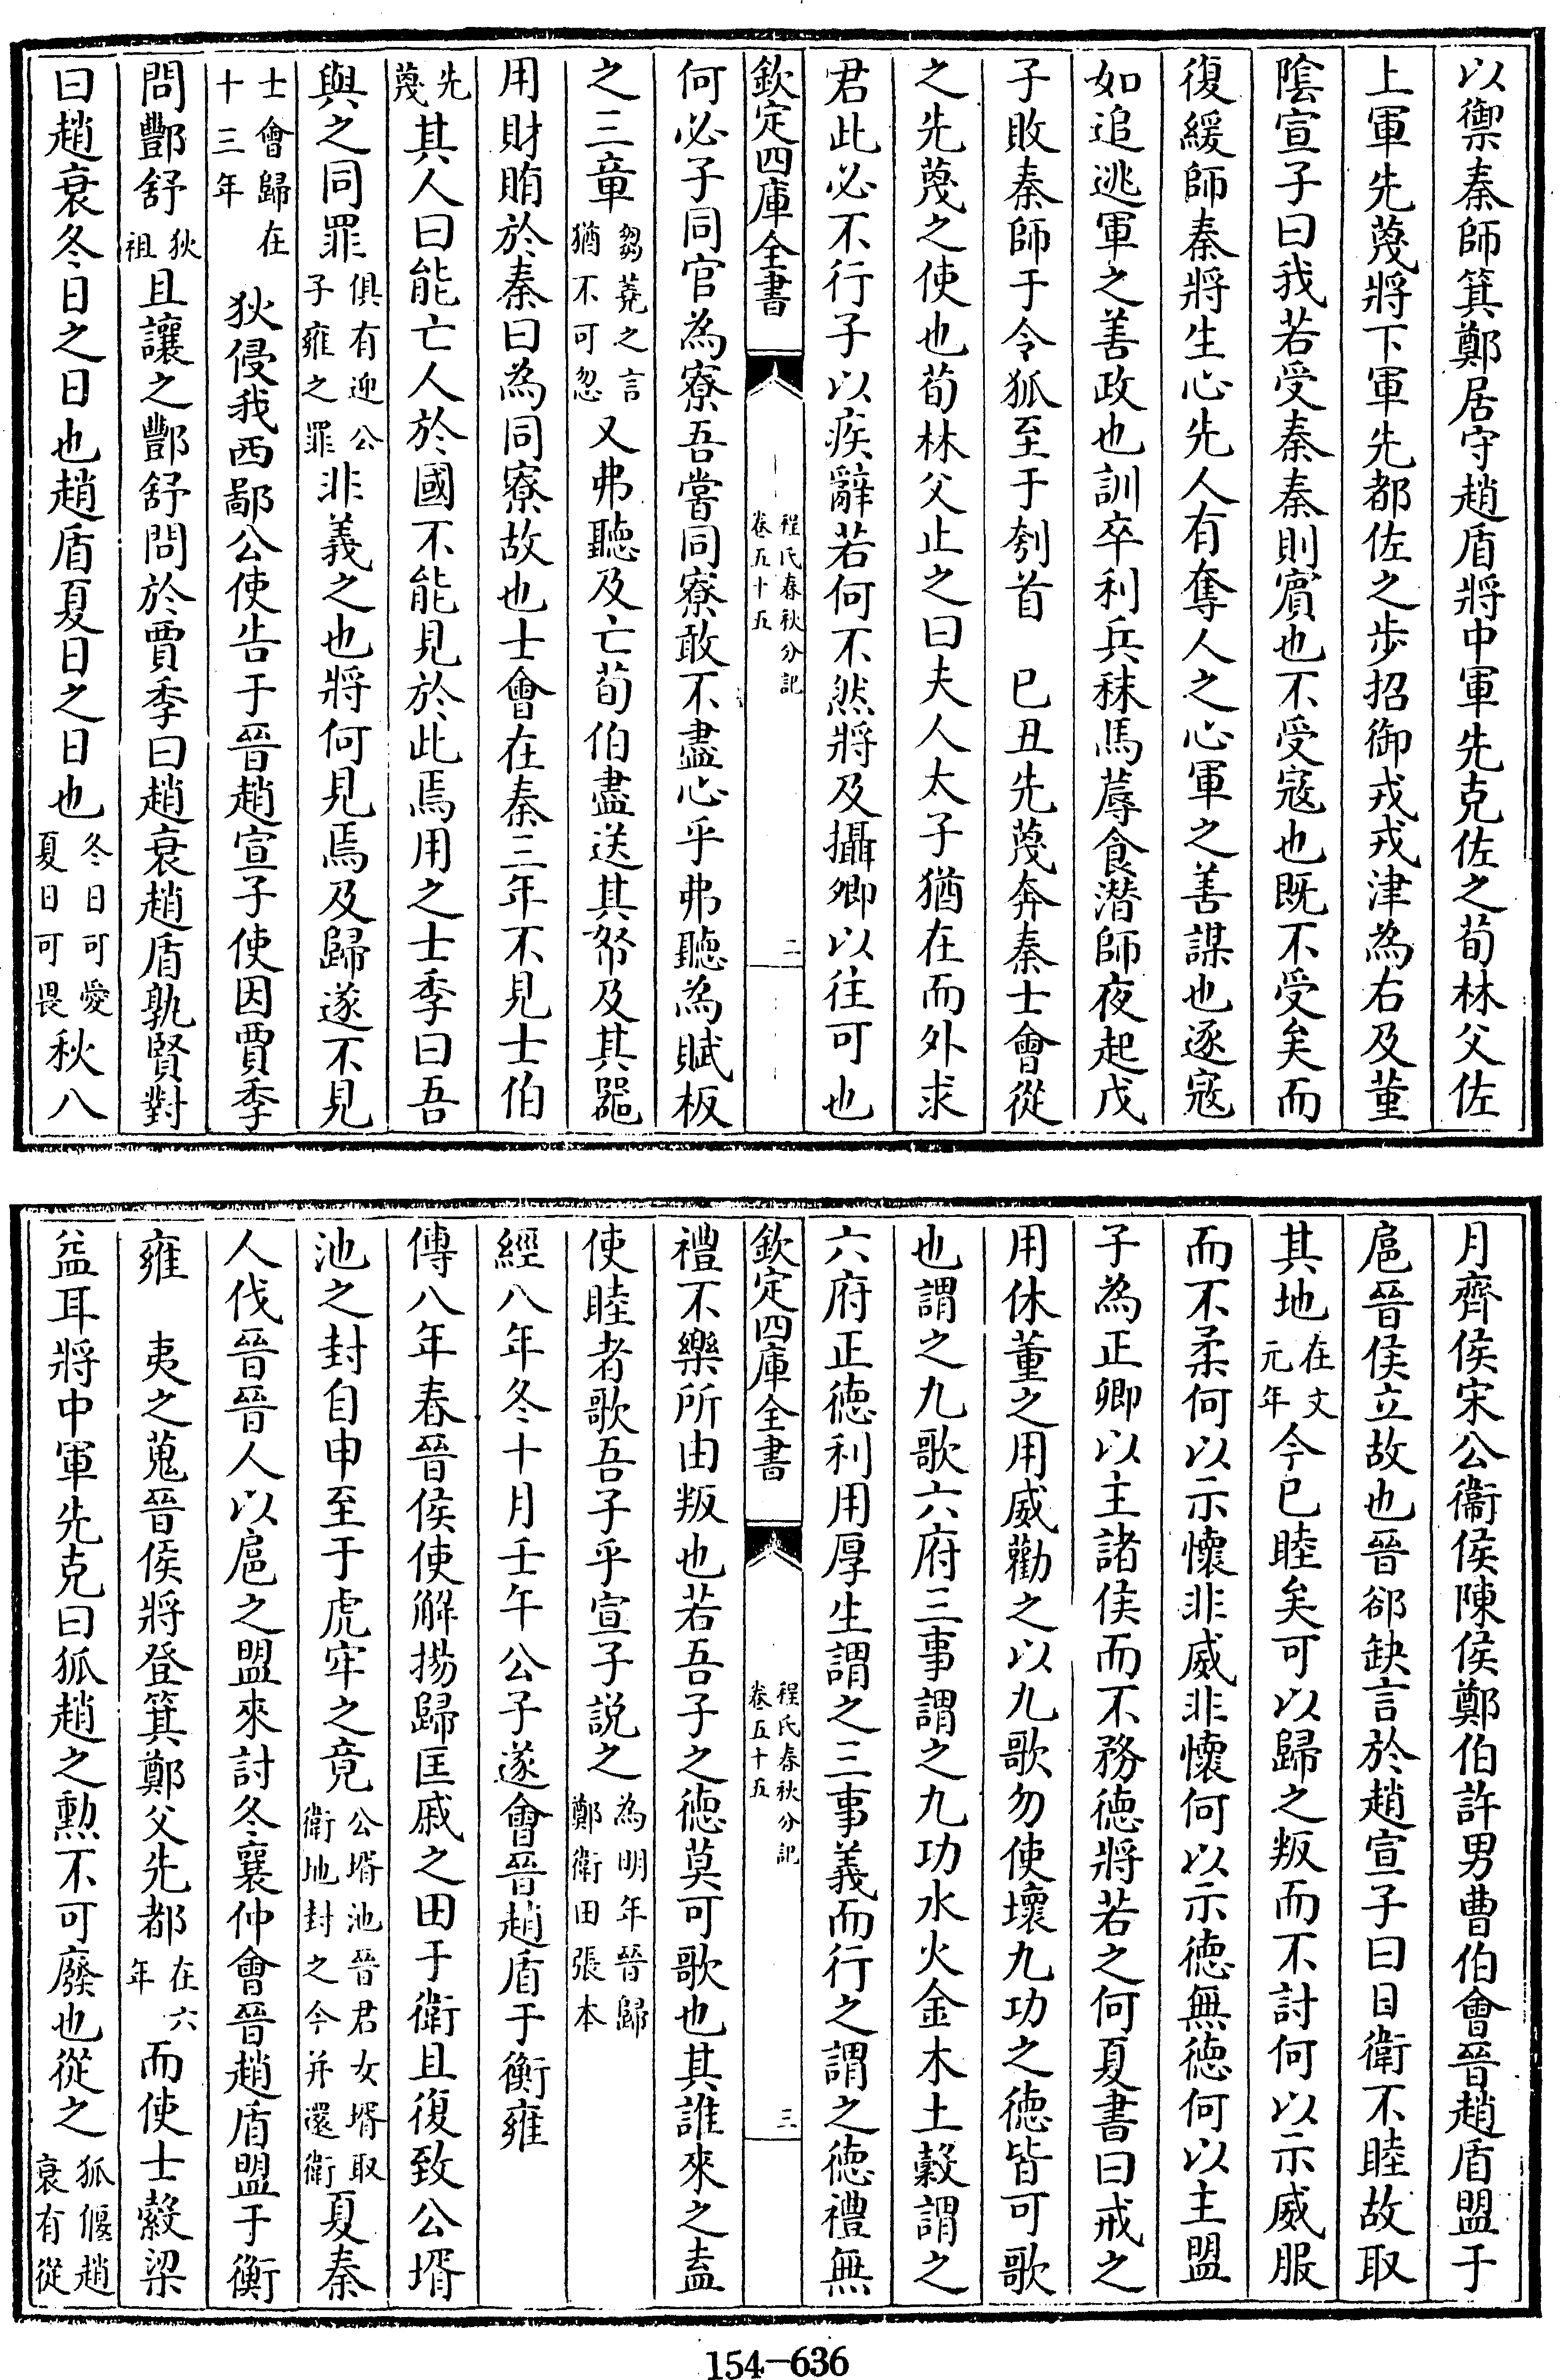 以禦秦師箕鄭居守趙盾將中軍先克佐之荀林父佐
上軍先蔑將下軍先都佐之步招御戎戎津為右及堇
隂宣子曰我若受秦秦則賔也不受寇也既不受矣而
復緩師秦將生心先人有奪人之心軍之善謀也逐寇
如追逃軍之善政也訓卒利兵秣馬蓐食潜師夜起戊
子敗秦師于令狐至于刳首　已丑先蔑奔秦士會從
之先蔑之使也荀林父止之曰夫人太子猶在而外求
君此必不行子以疾辭若何不然將及攝卿以往可也
欽定四庫全書
程氏春秋分記
卷五十五
二
何必子同官為寮吾嘗同寮敢不盡心乎弗聽為賦板
之三章芻蕘之言猶不可忽又弗聽及亡荀伯盡送其帑及其器
用財賄於秦曰為同寮故也士會在秦三年不見士伯
先蔑其人曰能亡人於國不能見於此焉用之士季曰吾
與之同罪俱有迎公子雍之罪非義之也將何見焉及歸遂不見
士會歸在十三年　狄侵我西鄙公使告于晉趙宣子使因賈季
問酆舒狄祖且讓之酆舒問於賈季曰趙衰趙盾孰賢對
曰趙衰冬日之日也趙盾夏日之日也冬日可愛夏日可畏秋八
月齊侯宋公衞侯陳侯鄭伯許男曹伯會晉趙盾盟于
扈晉侯立故也晉郤缺言於趙宣子曰日衛不睦故取
其地在文元年今已睦矣可以歸之叛而不討何以示威服
而不柔何以示懷非威非懷何以示徳無徳何以主盟
子為正卿以主諸侯而不務徳將若之何夏書曰戒之
用休董之用威勸之以九歌勿使壞九功之徳皆可歌
也謂之九歌六府三事謂之九功水火金木土穀謂之
六府正徳利用厚生謂之三事義而行之謂之徳禮無
欽定四庫全書
程氏春秋分記
卷五十五
三
禮不樂所由叛也若吾子之徳莫可歌也其誰來之盍
使睦者歌吾子乎宣子説之為明年晉歸鄭衛田張本
經八年冬十月壬午公子遂會晉趙盾于衡雍
傳八年春晉侯使解揚歸匡戚之田于衛且復致公壻
池之封自申至于虎牢之竟公壻池晉君女壻取衛地封之今并還衛夏秦
人伐晉晉人以扈之盟來討冬襄仲會晉趙盾盟于衡
雍　夷之蒐晉侯將登箕鄭父先都在六年而使士縠梁
益耳將中軍先克曰狐趙之勲不可廢也從之狐偃趙衰有從
154-636